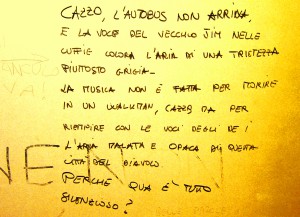 CAZZO, L'AUTOBUS NON ARRIVA,
E LA VOCE DEL VECCHIO JIM NELLE
CUFFIE COLORA L'ARIA DI UNA TRISTEZZA
PIUTTOSTO GRIGIA.
LA MUSICA NON È FATTA PER MORIRE
IN UN WALKMAN, CAZZO MA PER
RIEMPIRE CON LE VOCI DEGLI DEI
L'ARIA MALATA E OPACA DI QUESTA
CITTÀ DEL DIAVOLO.
PERCHÉ QUA È TUTTO
SILENZIOSO?